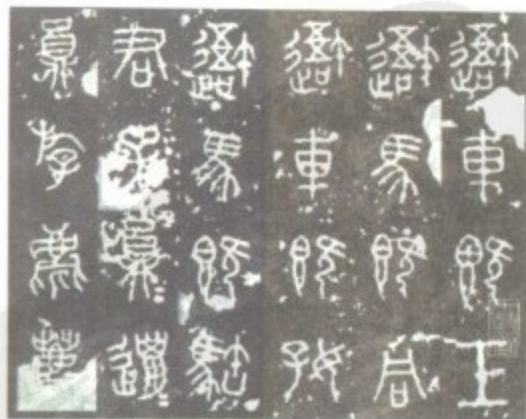 避車既工
避馬既同
避車既好
避馬既駓
君子員邋
員斿麀